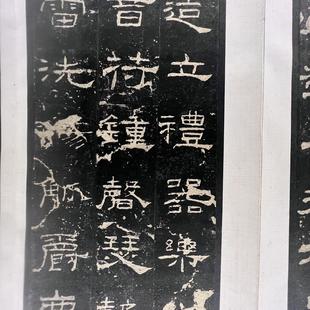 造立禮器樂
音苻鍾磬瑟鼓
雷洗觴觚爵鹿